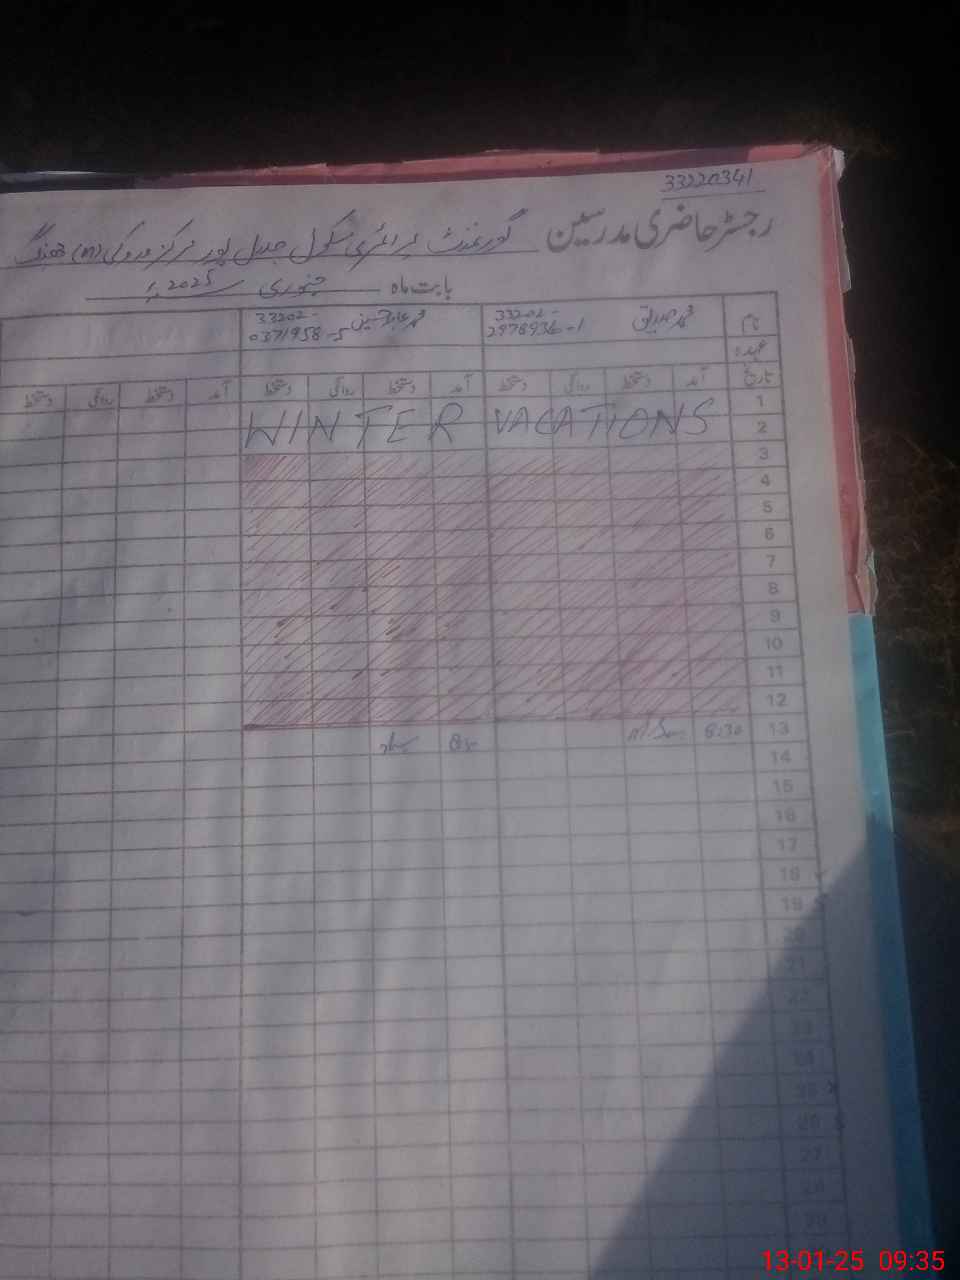 33220341
رجسٹر حاضری مدرسین گورنمنٹ پرائمری سکول جلال پور مرکز (m) جھنگ
بابت ماہ جنوری 2025ء
نام محمد صدیق 33202-2978936-1 محمد عابد حسین 33202-0371958-5
عہدہ
تاریخ آمد دستخط روانگی دستخط آمد دستخط روانگی دستخط آمد دستخط روانگی دستخط
1
WINTER VACATIONS
2
3
4
5
6
7
8
9
10
11
12
13 8:30
14
15
16
17
18
19
21
22
23
24
25
26
27
28
29
13-01-25 09:35